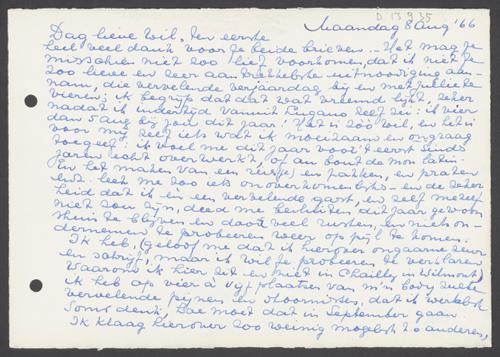 D 139.35
Maandag 8 Aug '66
Dag lieve Wil, ten eerste
heel veel dank voor je beide brieven. - Het mag je
misschien niet zoo lief voorkomen, dat ik niet je
zoo lieve en zeer aantrekkelijke uitnoodiging aan-
nam, die vervelende verjaardag bij en met jullie te
vieren; ik begrijp dat dat wat vreemd lijkt, zeker
nadat ik indertijd vanuit Lugano zelf zei: ik vier
dan 5 aug bij jou dit jaar! Het is zoo Wil, en het is
voor mij zelf iets wat ik moeizaam en ongraag
toegeef: ik voel me dit jaar voor 't eerst sinds
jaren echt overwerkt, of au bout de mon latin.
En het maken van een reisje en pakken, en praten
enz. leek me zoo iets onoverkomelijks - en de zeker
heid dat ik en een vervelende gast, en zelf mezelf
niet zou zijn, deed me besluiten dit jaar gewoon
thuis te blijven en door veel rusten, en niets on-
dernemen te probeeren weer op pijl te komen.
Ik heb, (geloof me dat ik hierover ongaarne zeur
en schrijf, maar ik wil je probeeren te verklaren
waarom ik hier zit en niet in Chailly en Wilmont)
ik heb op vier à vijf plaatsen van m'n body zulke
vervelende pijnen en stoornissen, dat ik werkelijk
soms denk, hoe moet dat in September gaan.
Ik klaag hierover zoo weinig mogelijk to anderen,